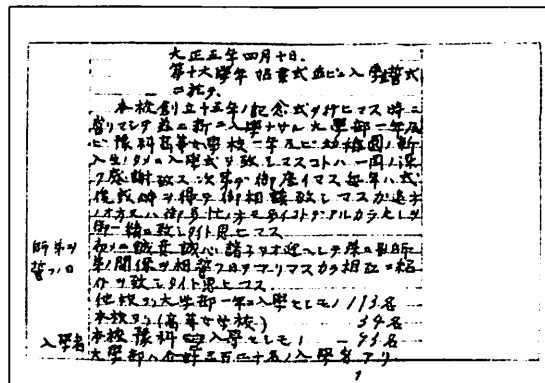 大正五年四月十日。
第十六學年始業式並ニ入學宣誓式
ニ於テ。
本校創立十五年ノ記念式ヲ行ヒマス時ニ
當リマシテ茲ニ新ニ入學ナサル大學部一年及
ビ豫科高等女學校一年及ビ幼稚園ノ新
入生ノタメニ入學式ヲ致シマスコトハ一同ノ深
ク感謝致ス次第デ御座イマス毎年ハ式
後教師ヲ得テ御相談致シマスガ遠方
御一緒ニ致シタイト思ヒマス
初メニ誠意誠心諸子ヲ迎ヘ
師弟ノ
誓ノ日
弟ノ關係ヲ相誓フ日デアリマスカラ相互ニ紹
介ヲ致シタイト思ヒマス
他校ヨリ大學部一年ニ入學セシモノ 113名
本校ヨリ(高等女學校) 54名
入學者
本校豫科ニ入學セシモノ 93名
大學部ハ合計三百二十五ノ入學者アリ
1